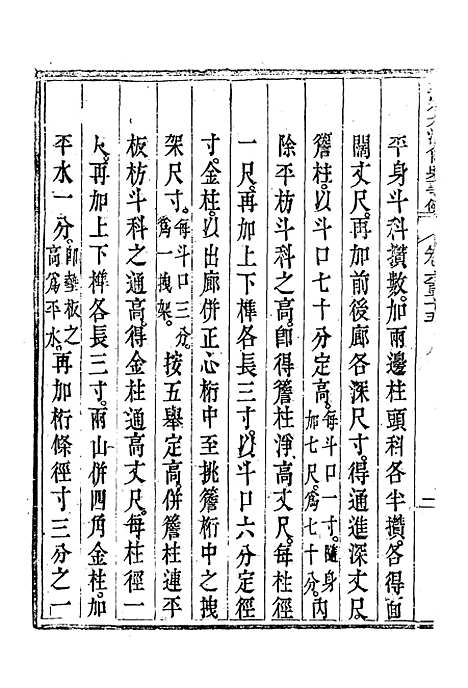 平身斗科攢數。加兩邊柱頭科各半攢。各得面
闊丈尺。再加前後廊各深尺寸。得通進深丈尺。
簷柱。以斗口七十分定高。每斗口一寸。隨身加七尺。爲七十分。內
除平枋斗科之高。卽得簷柱淨高丈尺。每柱徑
一尺。再加上下榫各長三寸。以斗口六分定徑
寸。金柱。以出廊併正心桁中至挑簷桁中之拽
架尺寸。每斗口三分。爲一拽架。按五舉定高。併簷柱連平
板枋斗科之通高。得金柱通高丈尺。每柱徑一
尺。再加上下榫各長三寸。兩山併四角金柱。加
平水一分。卽墊板之高爲平水。再加桁條徑寸三分之一
二